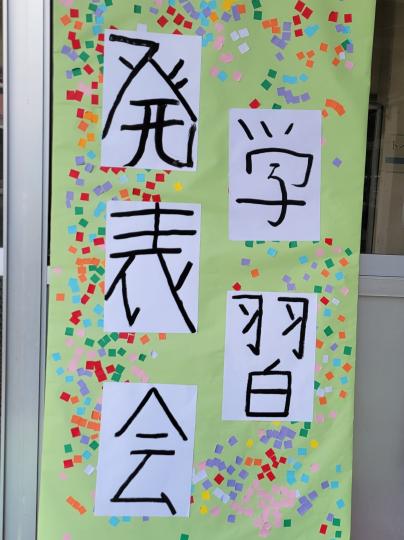 学習
発表会